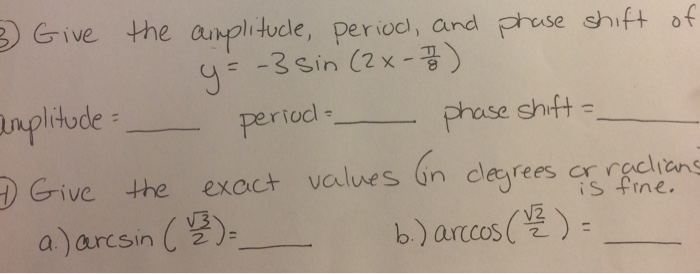 3) Give the amplitude, period, and phase shift of
y = -3 sin (2x - π/8)
amplitude = ____ period = ____ phase shift = ____
4) Give the exact values (in degrees or radians
is fine.
a.) arcsin (√3/2) = ____ b.) arccos (√2/2) = ____